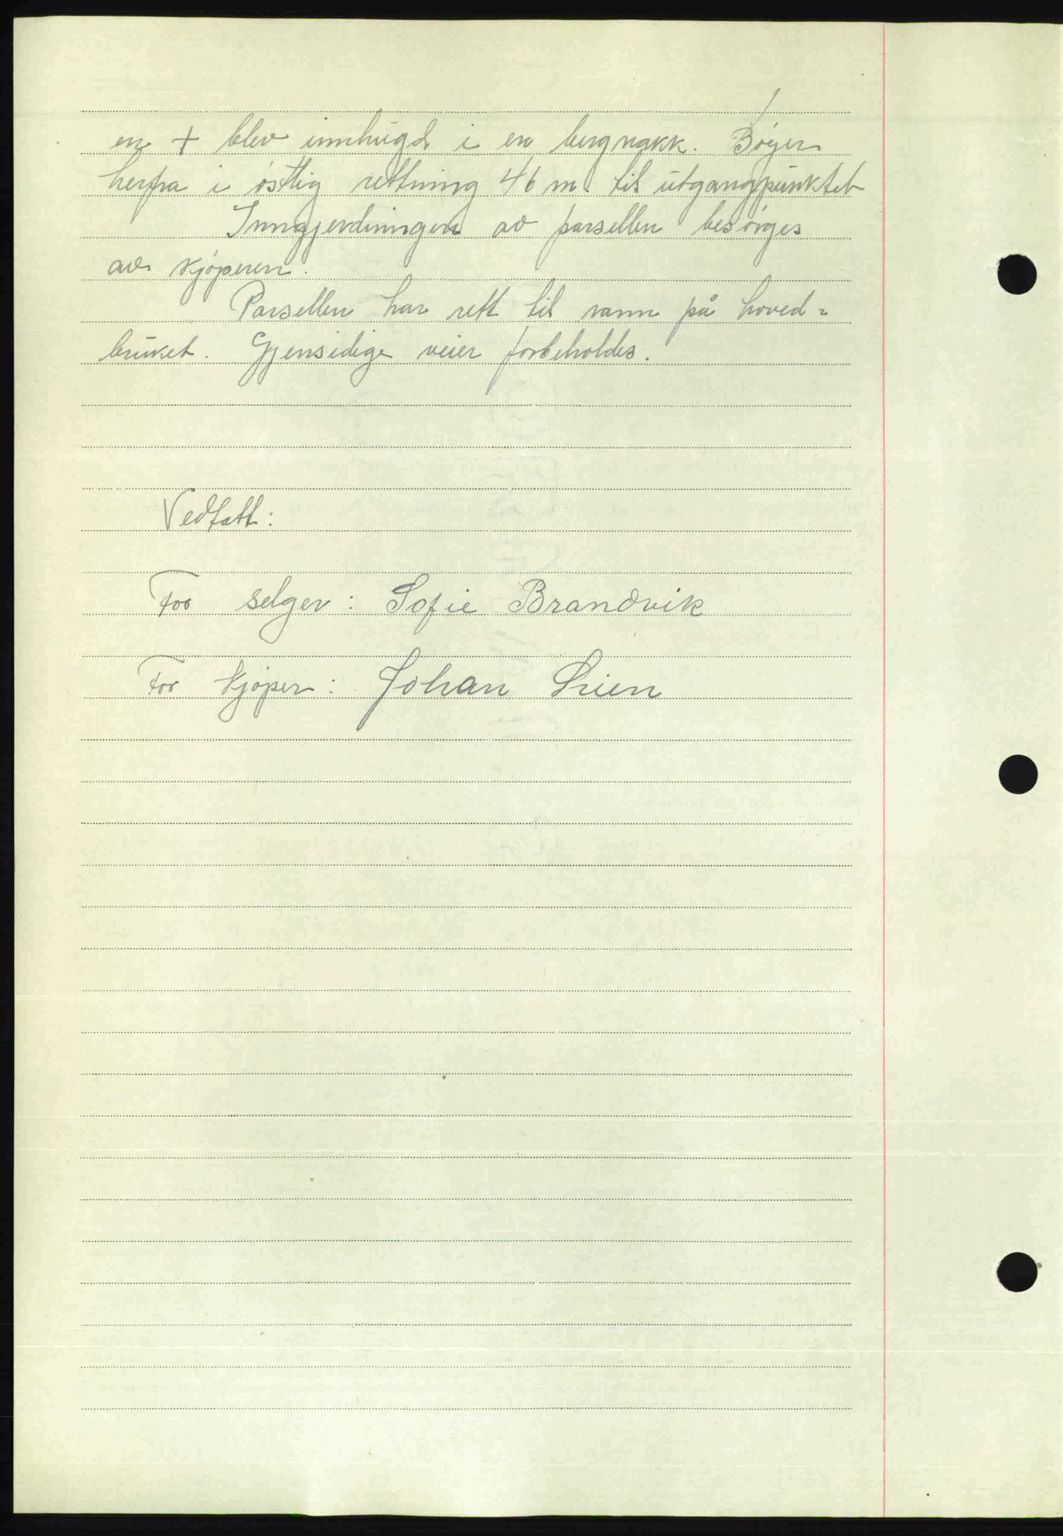 en + blev innhugd i en bergnakk. Bøyer
herfra i østlig rettning 46 m. til utgangpunktet
Inngjerdningen av parsellen besørges
av kjøperen.
Parsellen har rett til vann på hoved=
bruket. Gjensidige veier forbeholdes.
Vedtatt:
For selger: Sofie Brandvik
For kjøper: Johan Lien